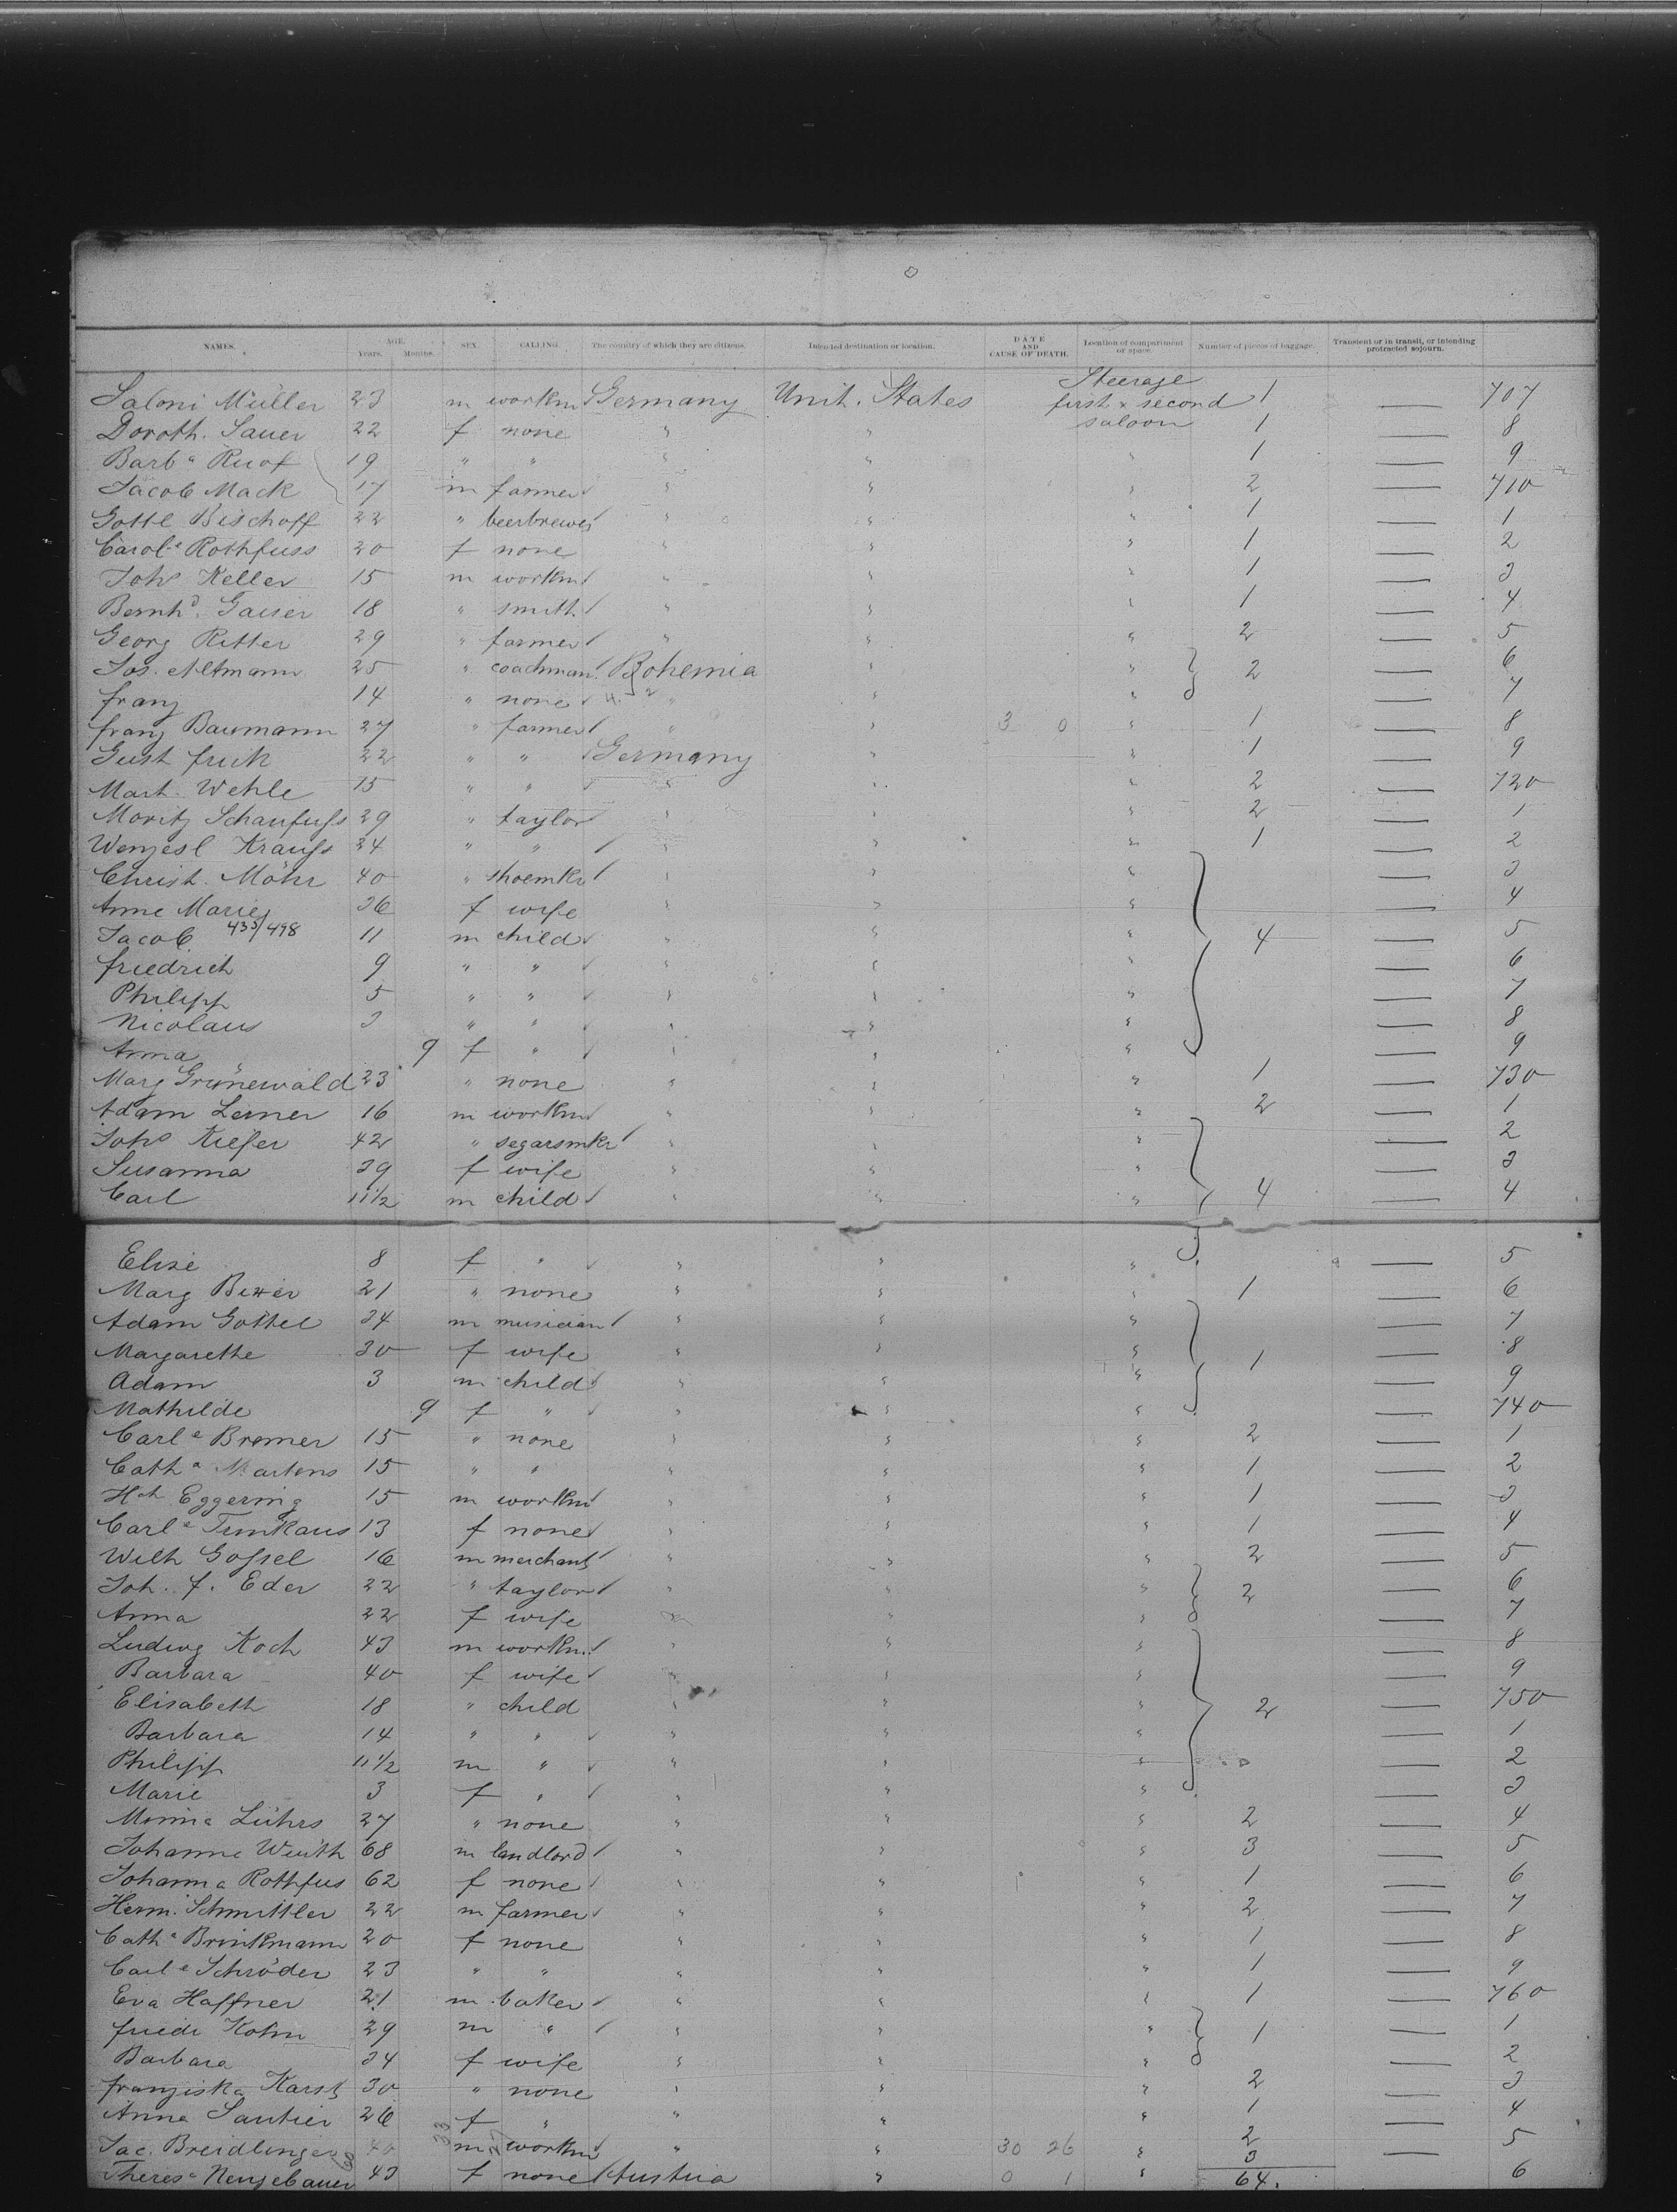 NAMES. AGE. Years. Months. SEX. CALLING. The country of which they are citizens. Intended destination or location. DATE AND CAUSE OF DEATH. Location of compartment or space. Number of pieces of baggage. Transient or in transit, or intending protracted sojourn.
Saloni Müller 23 m workm Germany Unit. States Steerage first & second saloon 1 — 707
Doroth. Sauer 22 f none " " 1 — 8
Barbª Ruof 19 " " " " " 1 — 9
Jacob Mack 17 m farmer " " " 2 — 710
Gottl Bischoff 22 " beerbrewer " " " 1 — 1
Carolᵉ Rothfuss 20 f none " " " 1 — 2
Johˢ Keller 15 m workm " " " 1 — 3
Bernhᵈ. Gaiser 18 " smith " " " 1 — 4
Georg Ritter 29 " farmer " " " 2 — 5
Jos. Altmann 25 " coachman Bohemia " " 2 — 6
franz 14 " none " " " — 7
franz Baumann 27 " farmer " " 3 0 " 1 — 8
Gust frick 22 " " Germany " " 1 — 9
Mart. Wehle 15 " " " " " 2 — 720
Moritz Schaufuss 29 " taylor " " " 2 — 1
Wenzesl Krauss 34 " " " " " 1 — 2
Christ. Möhr 40 " shoemkr " " " — 3
Anne Marie 36 f wife " " " — 4
Jacob 435/498 11 m child " " " 4 — 5
friedrich 9 " " " " " — 6
Philipp 5 " " " " " — 7
Nicolaus 3 " " " " " — 8
Anna 9 f " " " " — 9
Marg Grünewald 23 " none " " " 1 — 730
Adam Lerner 16 m workm " " " 2 — 1
Johˢ Kiefer 42 " segarsmkr " " " — 2
Susanna 39 f wife " " " — 3
Carl 11½ m child " " " 4 — 4
Elise 8 f " " " " — 5
Marg 21 " none " " " 1 — 6
Adam Gottel 34 m musician " " " — 7
Margarethe 30 f wife " " " 1 — 8
Adam 3 m child " " " — 9
Mathilde 9 f " " " " — 740
Carlᵉ Bremer 15 " none " " " 2 — 1
Cathª Martens 15 " " " " " 1 — 2
Hch Eggering 15 m workm " " " 1 — 3
Carlᵉ 13 f none " " " 1 — 4
Wilh Gossel 16 m merchant " " " 2 — 5
Joh. f. Eder 22 " taylor " " " 2 — 6
Anna 22 f wife " " " — 7
Ludwg Koch 43 m workm. " " " — 8
Barbara 40 f wife " " " — 9
Elisabeth 18 " child " " " 2 — 750
Barbara 14 " " " " " — 1
Philipp 11½ m " " " " — 2
Marie 3 f " " " " — 3
Minna Lührs 27 " none " " " 2 — 4
Johanne Wuith 68 m landlord " " " 3 — 5
Johanna Rothfus 62 f none " " " 1 — 6
Herm. Schmittler 22 m farmer " " " 2 — 7
Cathª Brinkmann 20 f none " " " 1 — 8
Carlᵉ Schröder 23 " " " " " 1 — 9
Eva Haffner 21 m baker " " " 1 — 760
friedr Kohm 29 m " " " " 1 — 1
Barbara 34 f wife " " " — 2
franziska Karst 30 " none " " " 2 — 3
Anna Sautier 26 f " " " " 1 — 4
Jac. Breidlinger 40 m workm " " 30 26 " 2 — 5
Theresᵉ Neugebauer 43 f none Austria " 0 1 " 3 — 6
64.